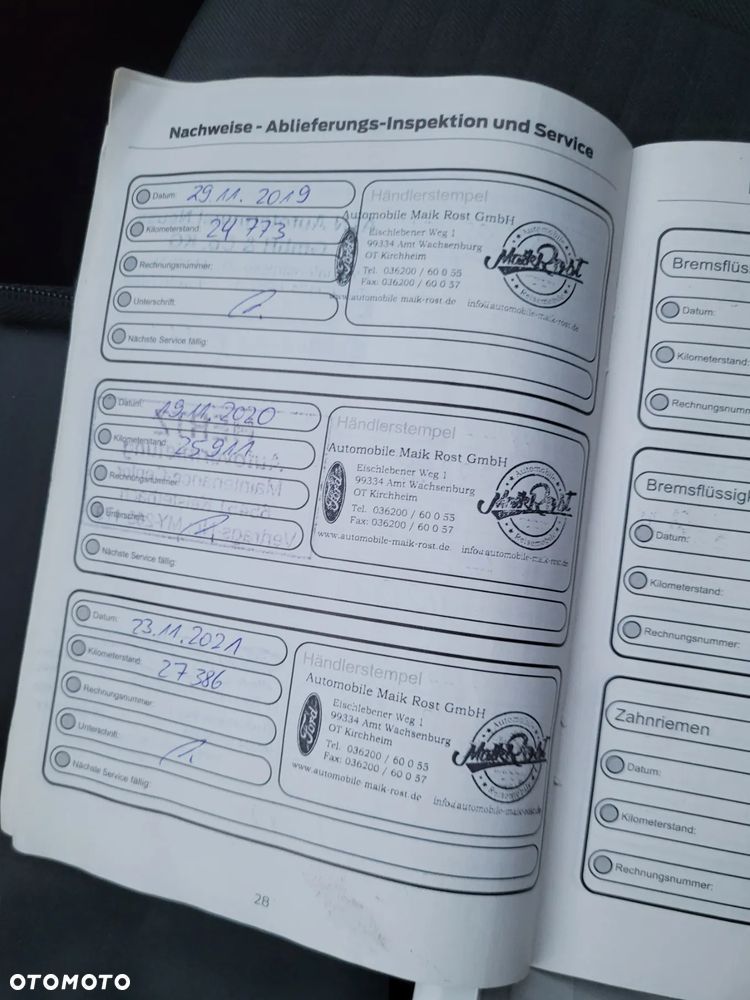 Nachweise - Ablieferungs-Inspektion und Service
Datum: 29.11. 2019
Kilometerstand: 24 773
Rechnungsnummer:
Unterschrift:
Nächste Service fällig:
Händlerstempel
Automobile Maik Rost GmbH
Eischlebener Weg 1
99334 Amt Wachsenburg
OT Kirchheim
Tel. 036200 / 60 0 55
Fax: 036200 / 60 0 57
www.automobile maik-rost.de info@automobile-maik-rost.de
Ford
Automobile
Maik Rost
Reisemobile
Datum: 19.11.2020
Kilometerstand: 25 911
Rechnungsnummer:
Unterschrift:
Nächste Service fällig:
Händlerstempel
Automobile Maik Rost GmbH
Eischlebener Weg 1
99334 Amt Wachsenburg
OT Kirchheim
Tel. 036200 / 60 0 55
Fax: 036200 / 60 0 57
www.automobile-maik-rost.de info@automobile-maik-rost.de
Ford
Automobile
Maik Rost
Reisemobile
Datum: 23.11.2021
Kilometerstand: 27 386
Rechnungsnummer:
Unterschrift:
Nächste Service fällig:
Händlerstempel
Automobile Maik Rost GmbH
Eischlebener Weg 1
99334 Amt Wachsenburg
OT Kirchheim
Tel. 036200 / 60 0 55
Fax: 036200 / 60 0 57
www.automobile-maik-rost.de info@automobile-maik-rost.de
Ford
Automobile
Maik Rost
Reisemobile
28
Bremsflüss
Datum:
Kilometerstand:
Rechnungsnumm
Bremsflüssigk
Datum:
Kilometerstand:
Rechnungsnummer:
Zahnriemen
Datum:
Kilometerstand:
Rechnungsnummer:
OTOMOTO